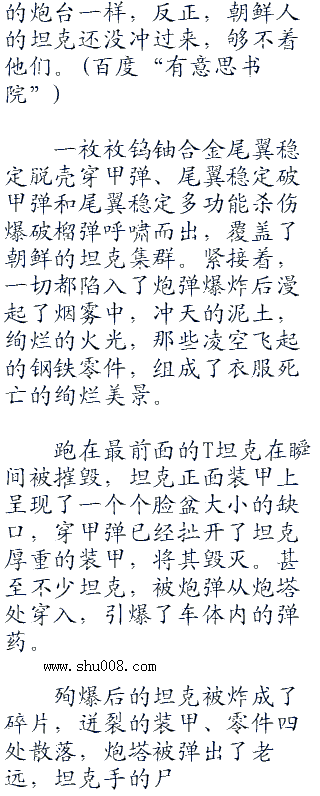 的炮台一样，反正，朝鲜人
的坦克还没冲过来，够不着
他们。(百度“有意思书
院”)
一枚枚钨铀合金尾翼稳
定脱壳穿甲弹、尾翼稳定破
甲弹和尾翼稳定多功能杀伤
爆破榴弹呼啸而出，覆盖了
朝鲜的坦克集群。紧接着，
一切都陷入了炮弹爆炸后漫
起了烟雾中，冲天的泥土，
绚烂的火光，那些凌空飞起
的钢铁零件，组成了衣服死
亡的绚烂美景。
跑在最前面的T坦克在瞬
间被摧毁，坦克正面装甲上
呈现了一个个脸盆大小的缺
口，穿甲弹已经扯开了坦克
厚重的装甲，将其毁灭。甚
至不少坦克，被炮弹从炮塔
处穿入，引爆了车体内的弹
药。
www.shu008.com
殉爆后的坦克被炸成了
碎片，迸裂的装甲、零件四
处散落，炮塔被弹出了老
远，坦克手的尸